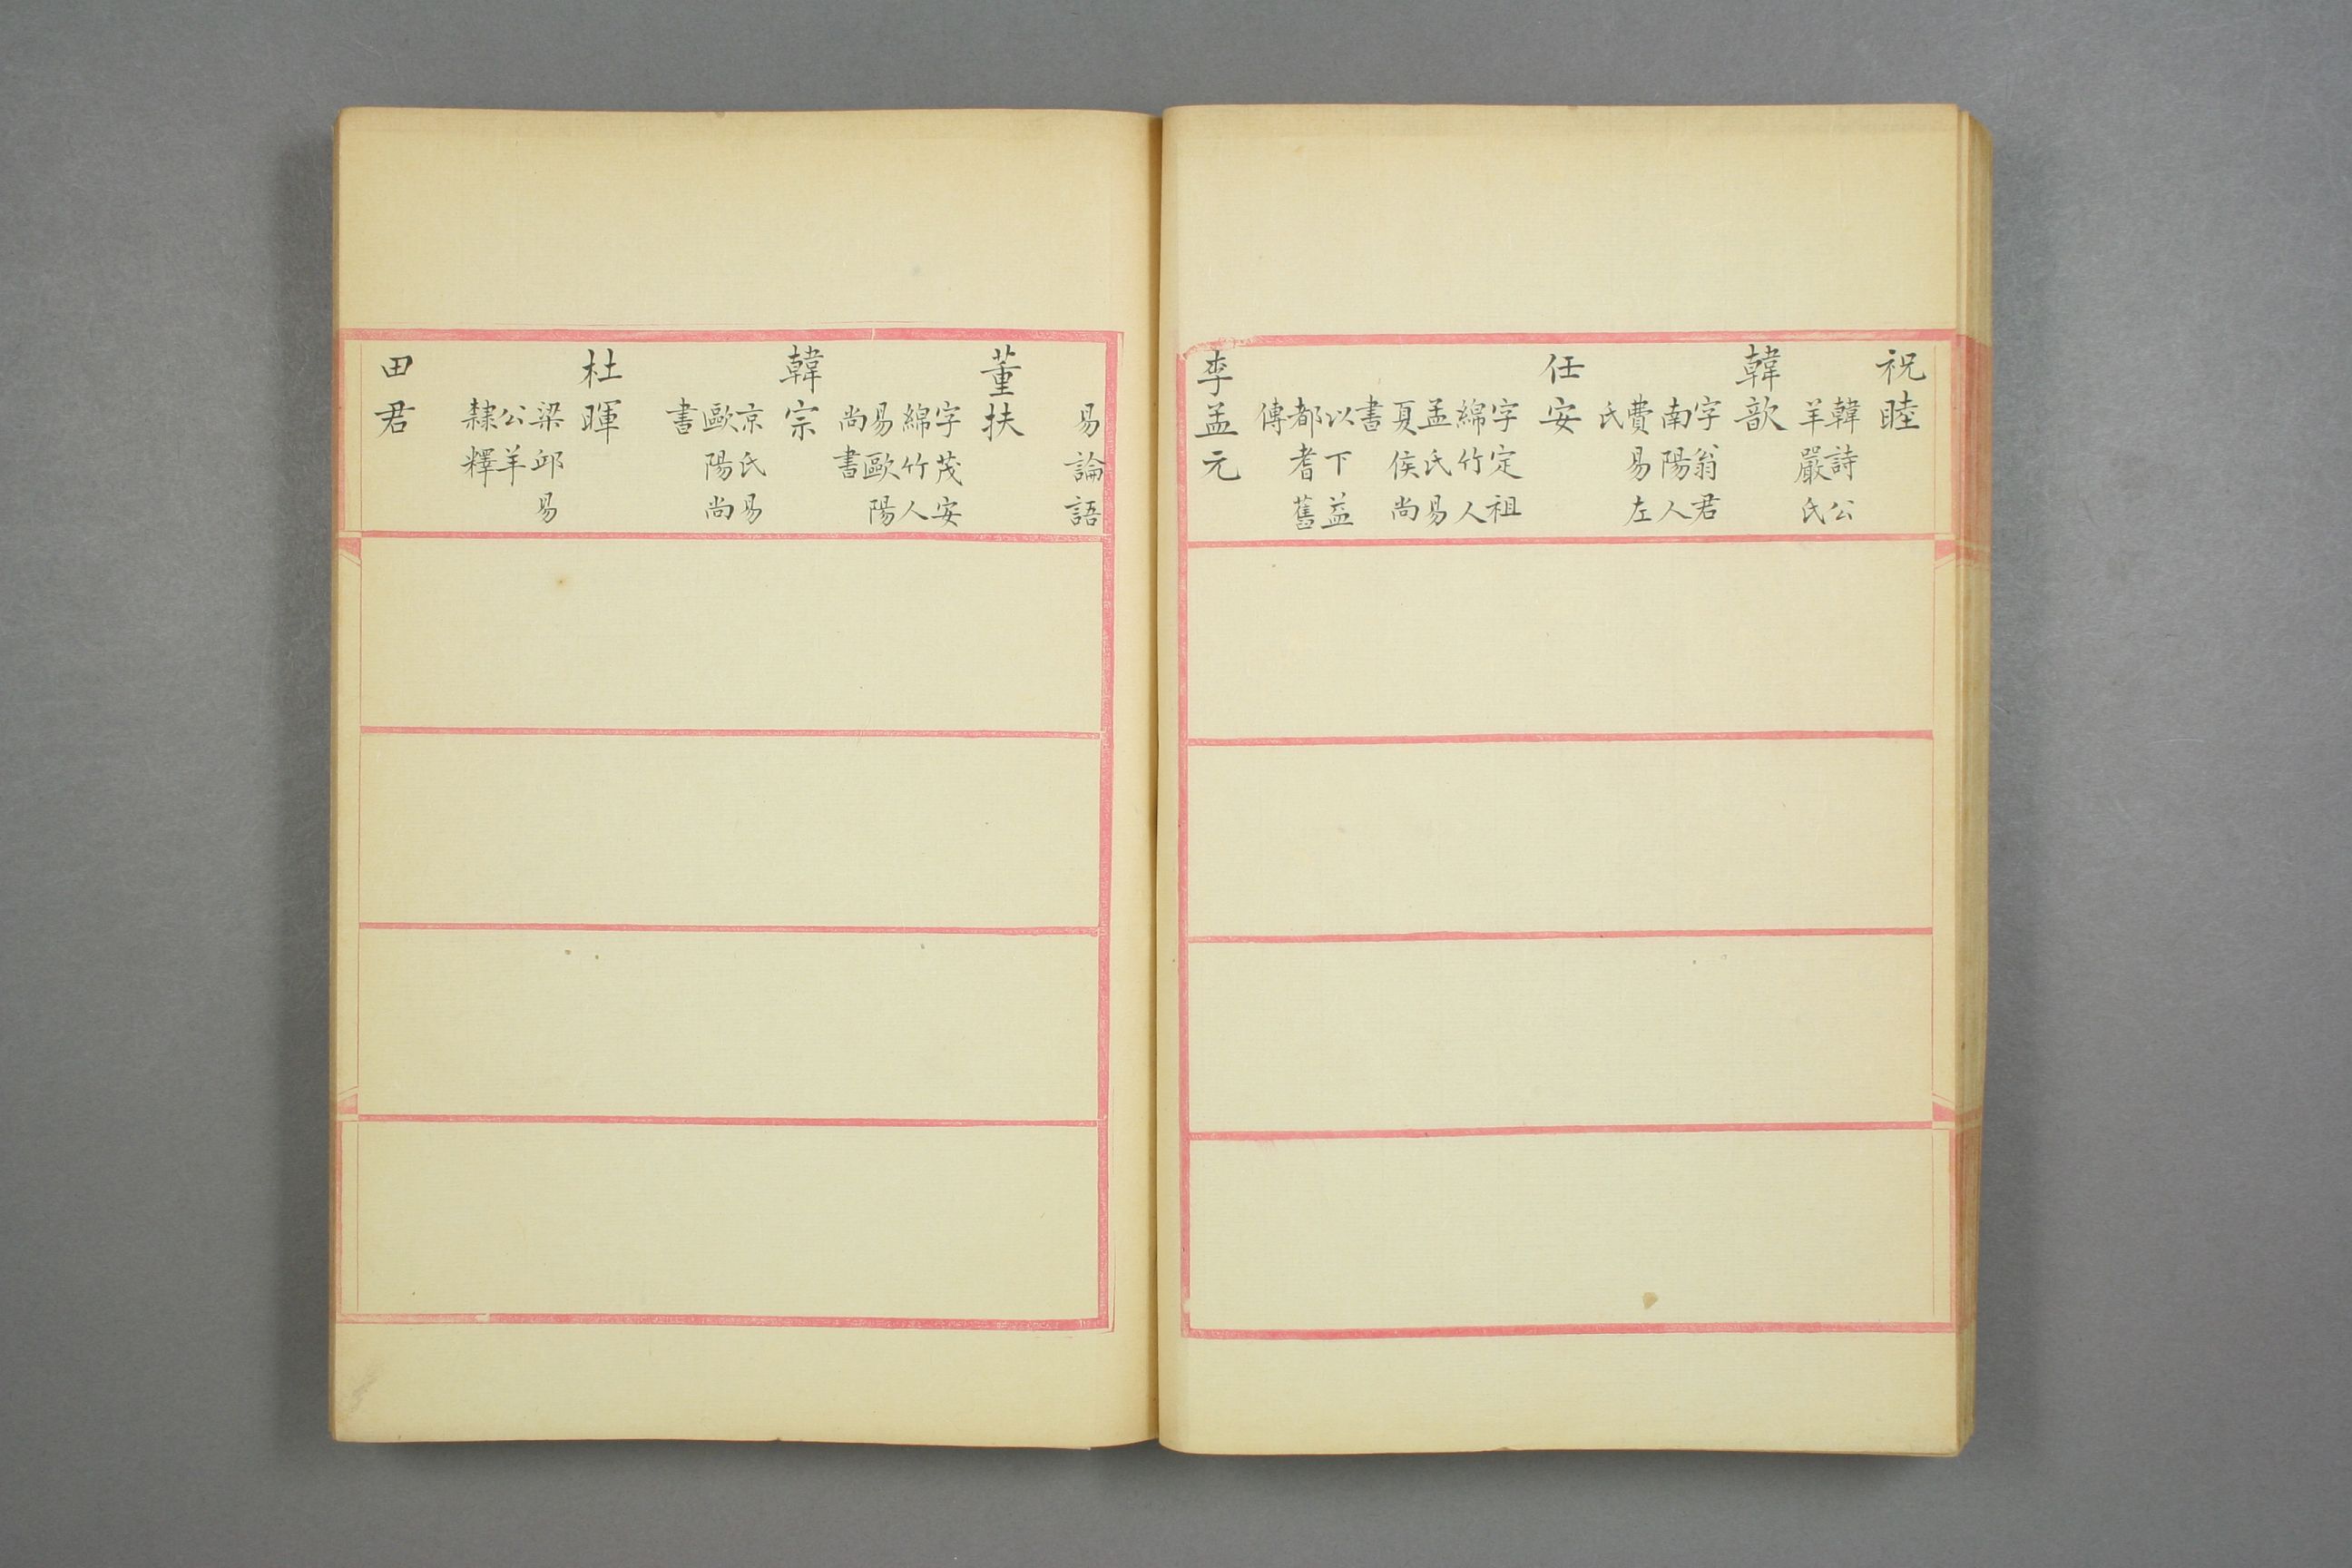 祝睦
韓詩公
羊嚴氏
韓歆
字翁君
南陽人
費易左
氏
任安
字定祖
綿竹人
孟氏易
夏侯尚
書
以下益
都耆舊
傳
李孟元
易論語
董扶
字茂安
綿竹人
易歐陽
尚書
韓宗
京氏易
歐陽尚
書
杜暉
梁邱易
公羊
隸釋
田君